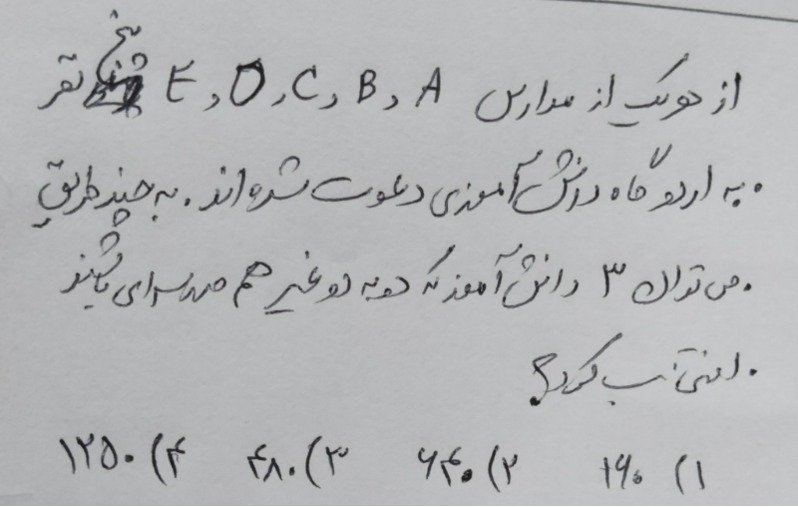 از هر یک از مدارس A، B، C، D، E پنج نفر
به اردوگاه دانش آموزی دعوت شده اند. به چند طریق
می توان ۳ دانش آموز که دو به دو غیر هم مدرسه ای باشند
انتخاب کرد؟
۱) ۱۶۰ ۲) ۶۴۰ ۳) ۴۸۰ ۴) ۱۲۵۰